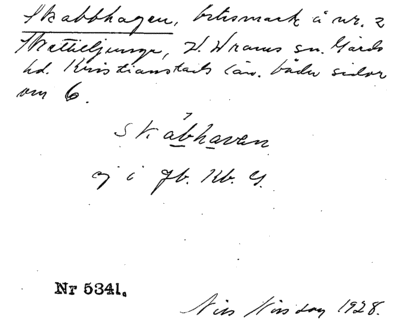 Skabbhagen, betesmark å nr. 2
Skättilljunga, V. Vrams sn. Gärds
hd. Kristianstads län. både sidor
om 6.
skabhaven
ej i Jb. Kb. G.
Nr 5341.
Nils 1928.